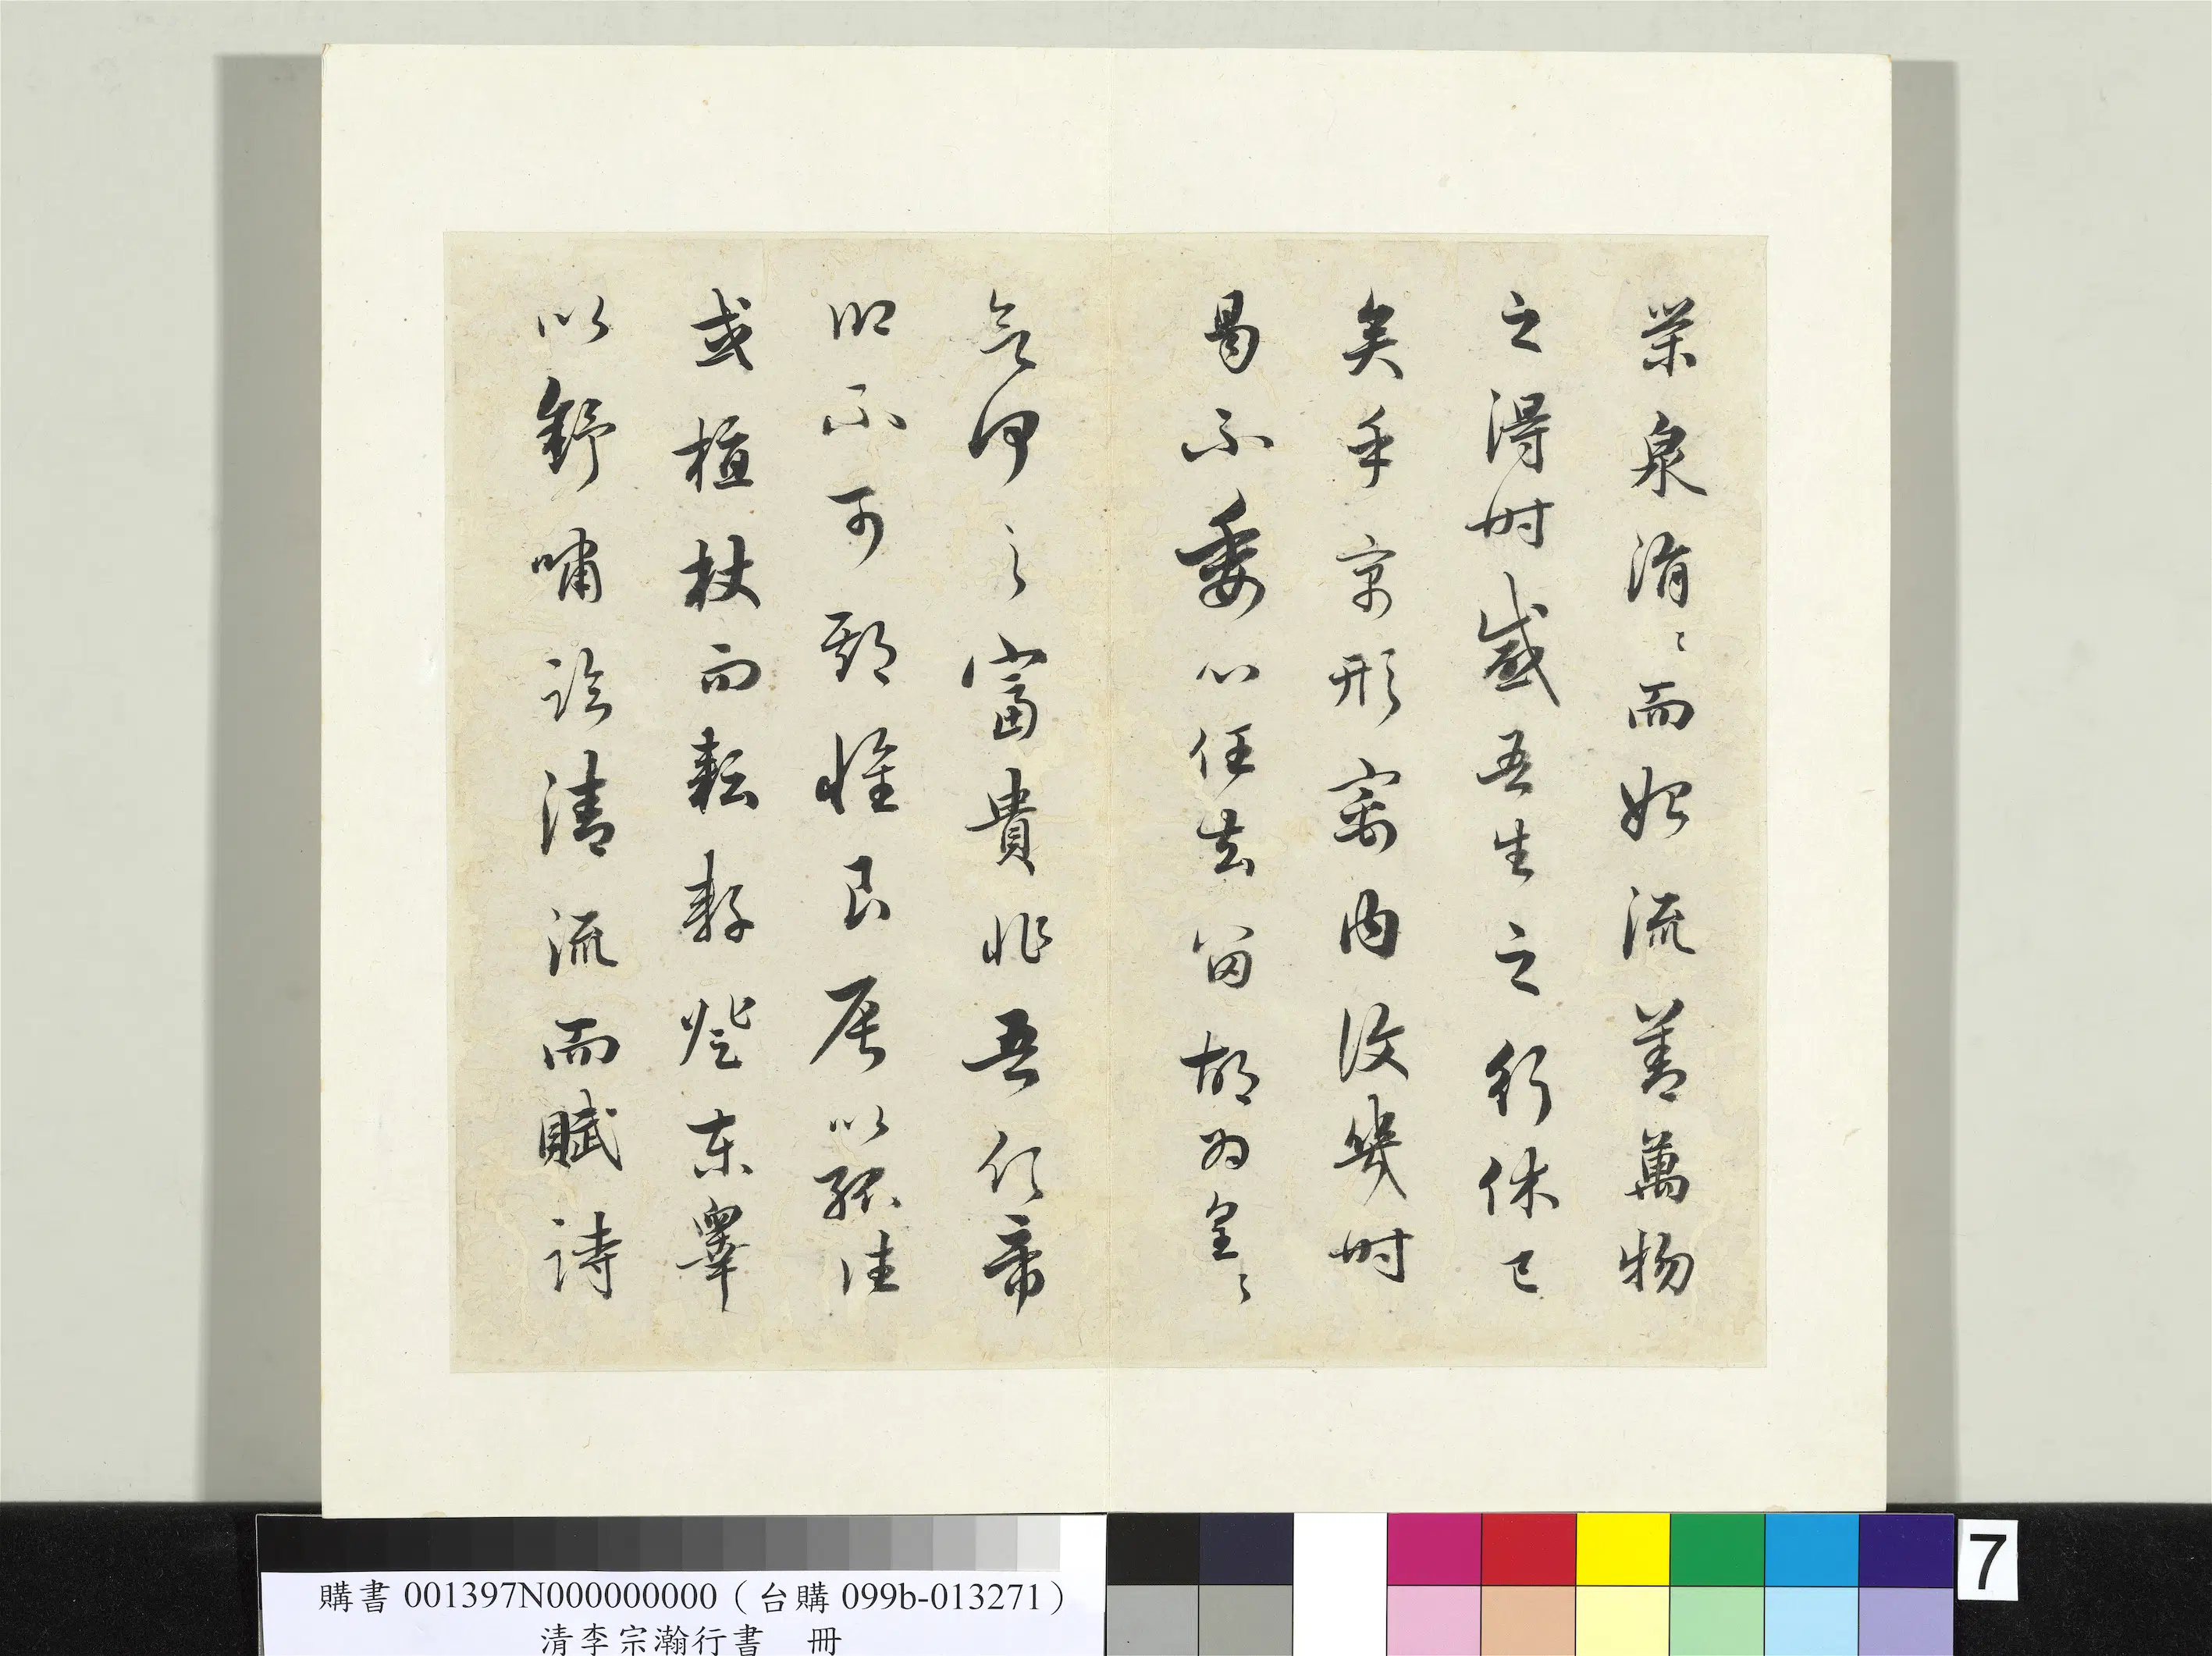 榮泉涓〻而始流善萬物
之得時感吾生之行休已
矣乎寓形㝢內復幾時
曷不委心任去留胡為皇〻
欲何之富貴非吾願帝
鄉不可期懷良辰以孤往
或植杖而耘耔登東皋
以舒嘯臨清流而賦詩
購書 001397N000000000（台購 099b-013271）
清李宗瀚行書　冊
7